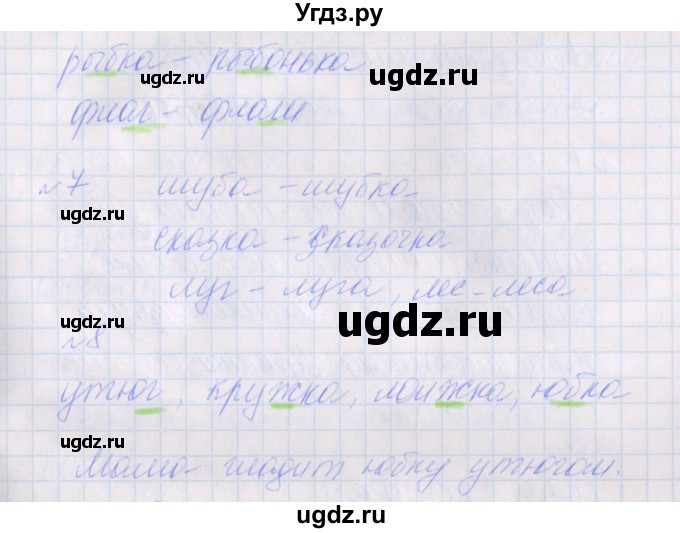 Угдз.ру
рыбка - рыбонька
ugdz.ru
ugdz.ru
флаг - флаги
ugdz.ru
№7 шуба - шубка
ugdz.ru
сказка - сказочка
ugdz.ru
луг - луга, лес - леса
ugdz.ru
№8
ugdz.ru
утюг, кружка, ложка, юбка
ugdz.ru
ugdz.ru
Мама гладит юбку утюгом.
ugdz.ru
ugdz.ru